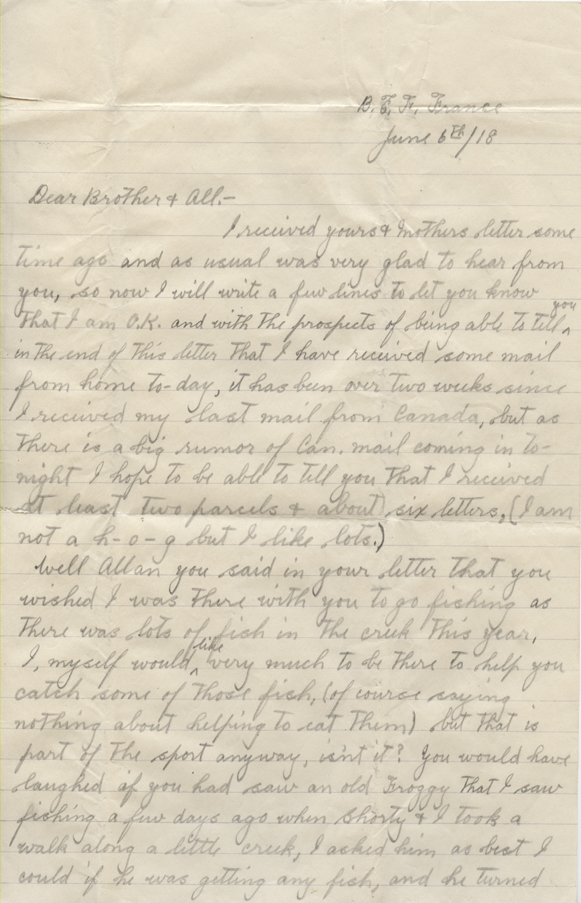 B. E. F. France
June 6th/18
Dear Brother & All.-
I received yours & Mothers letter some
time ago and as usual was very glad to hear from
you, so now I will write a few lines to let you know
that I am O.K. and with the prospects of being able to tell you
in the end of this letter that I have received some mail
from home to-day, it has been over two weeks since
I received my last mail from Canada, but as
there is a big rumor of Can. mail coming in to-
night I hope to be able to tell you that I received
at least two parcels & about six letters, (I am
not a h-o-g but I like lots.)
Well Allan you said in your letter that you
wished I was there with you to go fishing as
there was lots of fish in the creek this year,
I, myself would like very much to be there to help you
catch some of those fish, (of course saying
nothing about helping to eat them) but that is
part of the sport anyway, isn't it? You would have
laughed if you had saw an old Froggy that I saw
fishing a few days ago when Shorty & I took a
walk along a little creek, I asked him as best I
could if he was getting any fish, and he turned